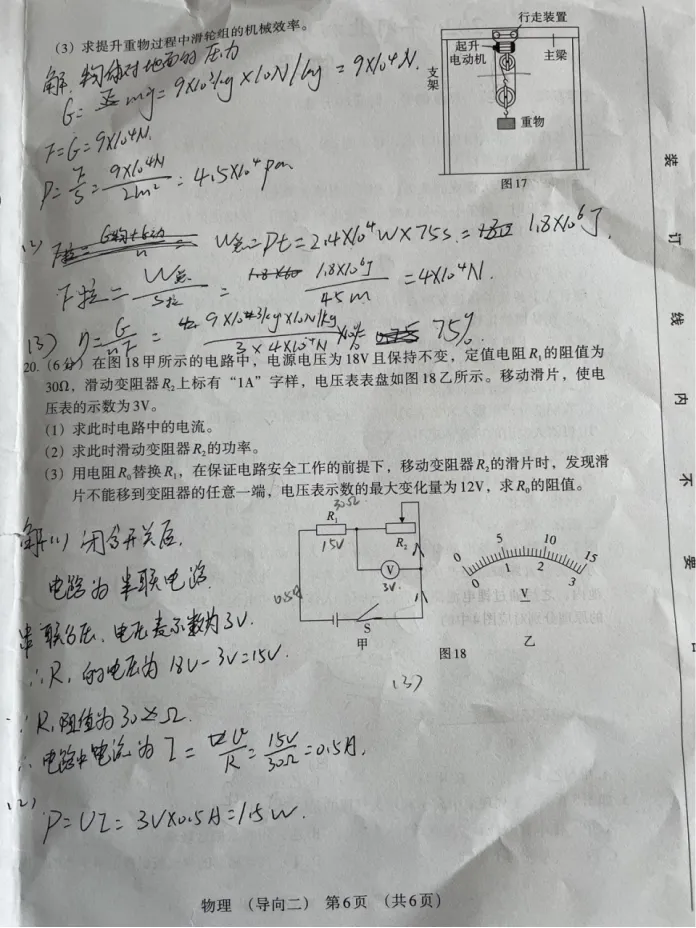 (3)求提升重物过程中滑轮组的机械效率。
行走装置
起升
电动机
主梁
支架
重物
图17
解:物体对地面的压力
G= mg=9×10³kg×10N/kg=9×10⁴N.
F=G=9×10⁴N.
P=F/S=9×10⁴N/2m²=4.5×10⁴pa
(2) W总=Pt=2.4×10⁴W×75s= 1.8×10⁶J.
F拉=W总/S拉= 1.8×10⁶J/45m =4×10⁴N.
(3) η=G/nF= 9×10³kg×10N/kg/3×4×10⁴N ×100% 75%.
20.(6分)在图18甲所示的电路中,电源电压为18V且保持不变,定值电阻R₁的阻值为
30Ω,滑动变阻器R₂上标有“1A”字样,电压表表盘如图18乙所示。移动滑片,使电
压表的示数为3V。
(1)求此时电路中的电流。
(2)求此时滑动变阻器R₂的功率。
(3)用电阻R₀替换R₁,在保证电路安全工作的前提下,移动变阻器R₂的滑片时,发现滑
片不能移到变阻器的任意一端,电压表示数的最大变化量为12V,求R₀的阻值。
30Ω
R₁
15V
R₂
V
3V
0.5A
S
甲
0 5 10 15
0 1 2 3
V
乙
图18
(3)
解:(1)闭合开关后,
电路为串联电路.
串联分压,电压表示数为3V.
∴R₁的电压为18V-3V=15V.
∵R₁阻值为30Ω.
∴电路中电流为I=U/R=15V/30Ω=0.5A.
(2)
P=UI=3V×0.5A=1.5W.
装
订
线
内
不
要
物理 (导向二) 第6页 (共6页)